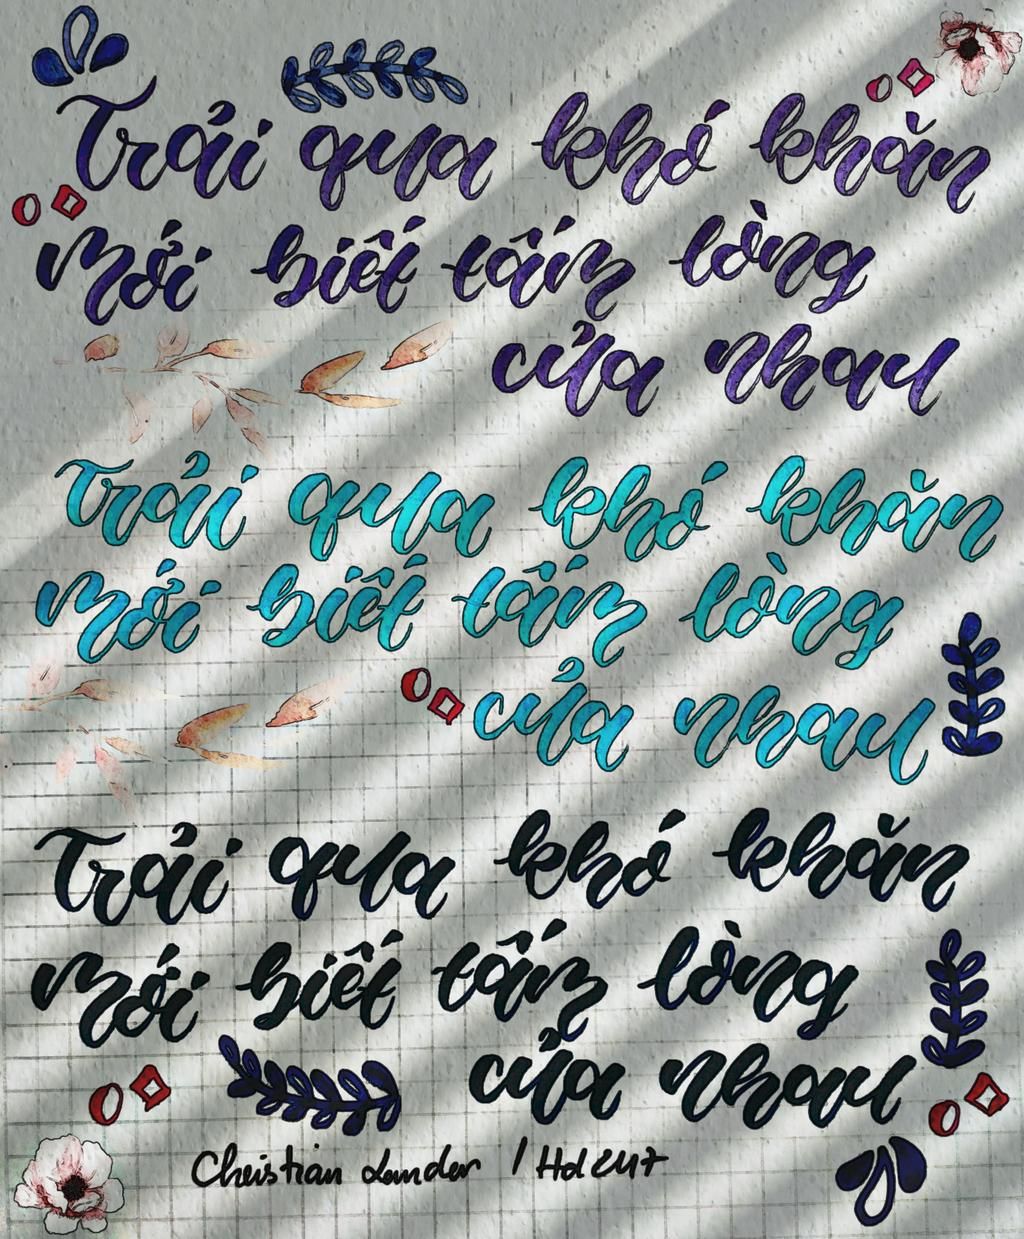 Trải qua khó khăn
mới biết tấm lòng
của nhau
Trải qua khó khăn
mới biết tấm lòng
của nhau
Trải qua khó khăn
mới biết tấm lòng
của nhau
Christian Lander / Hd247